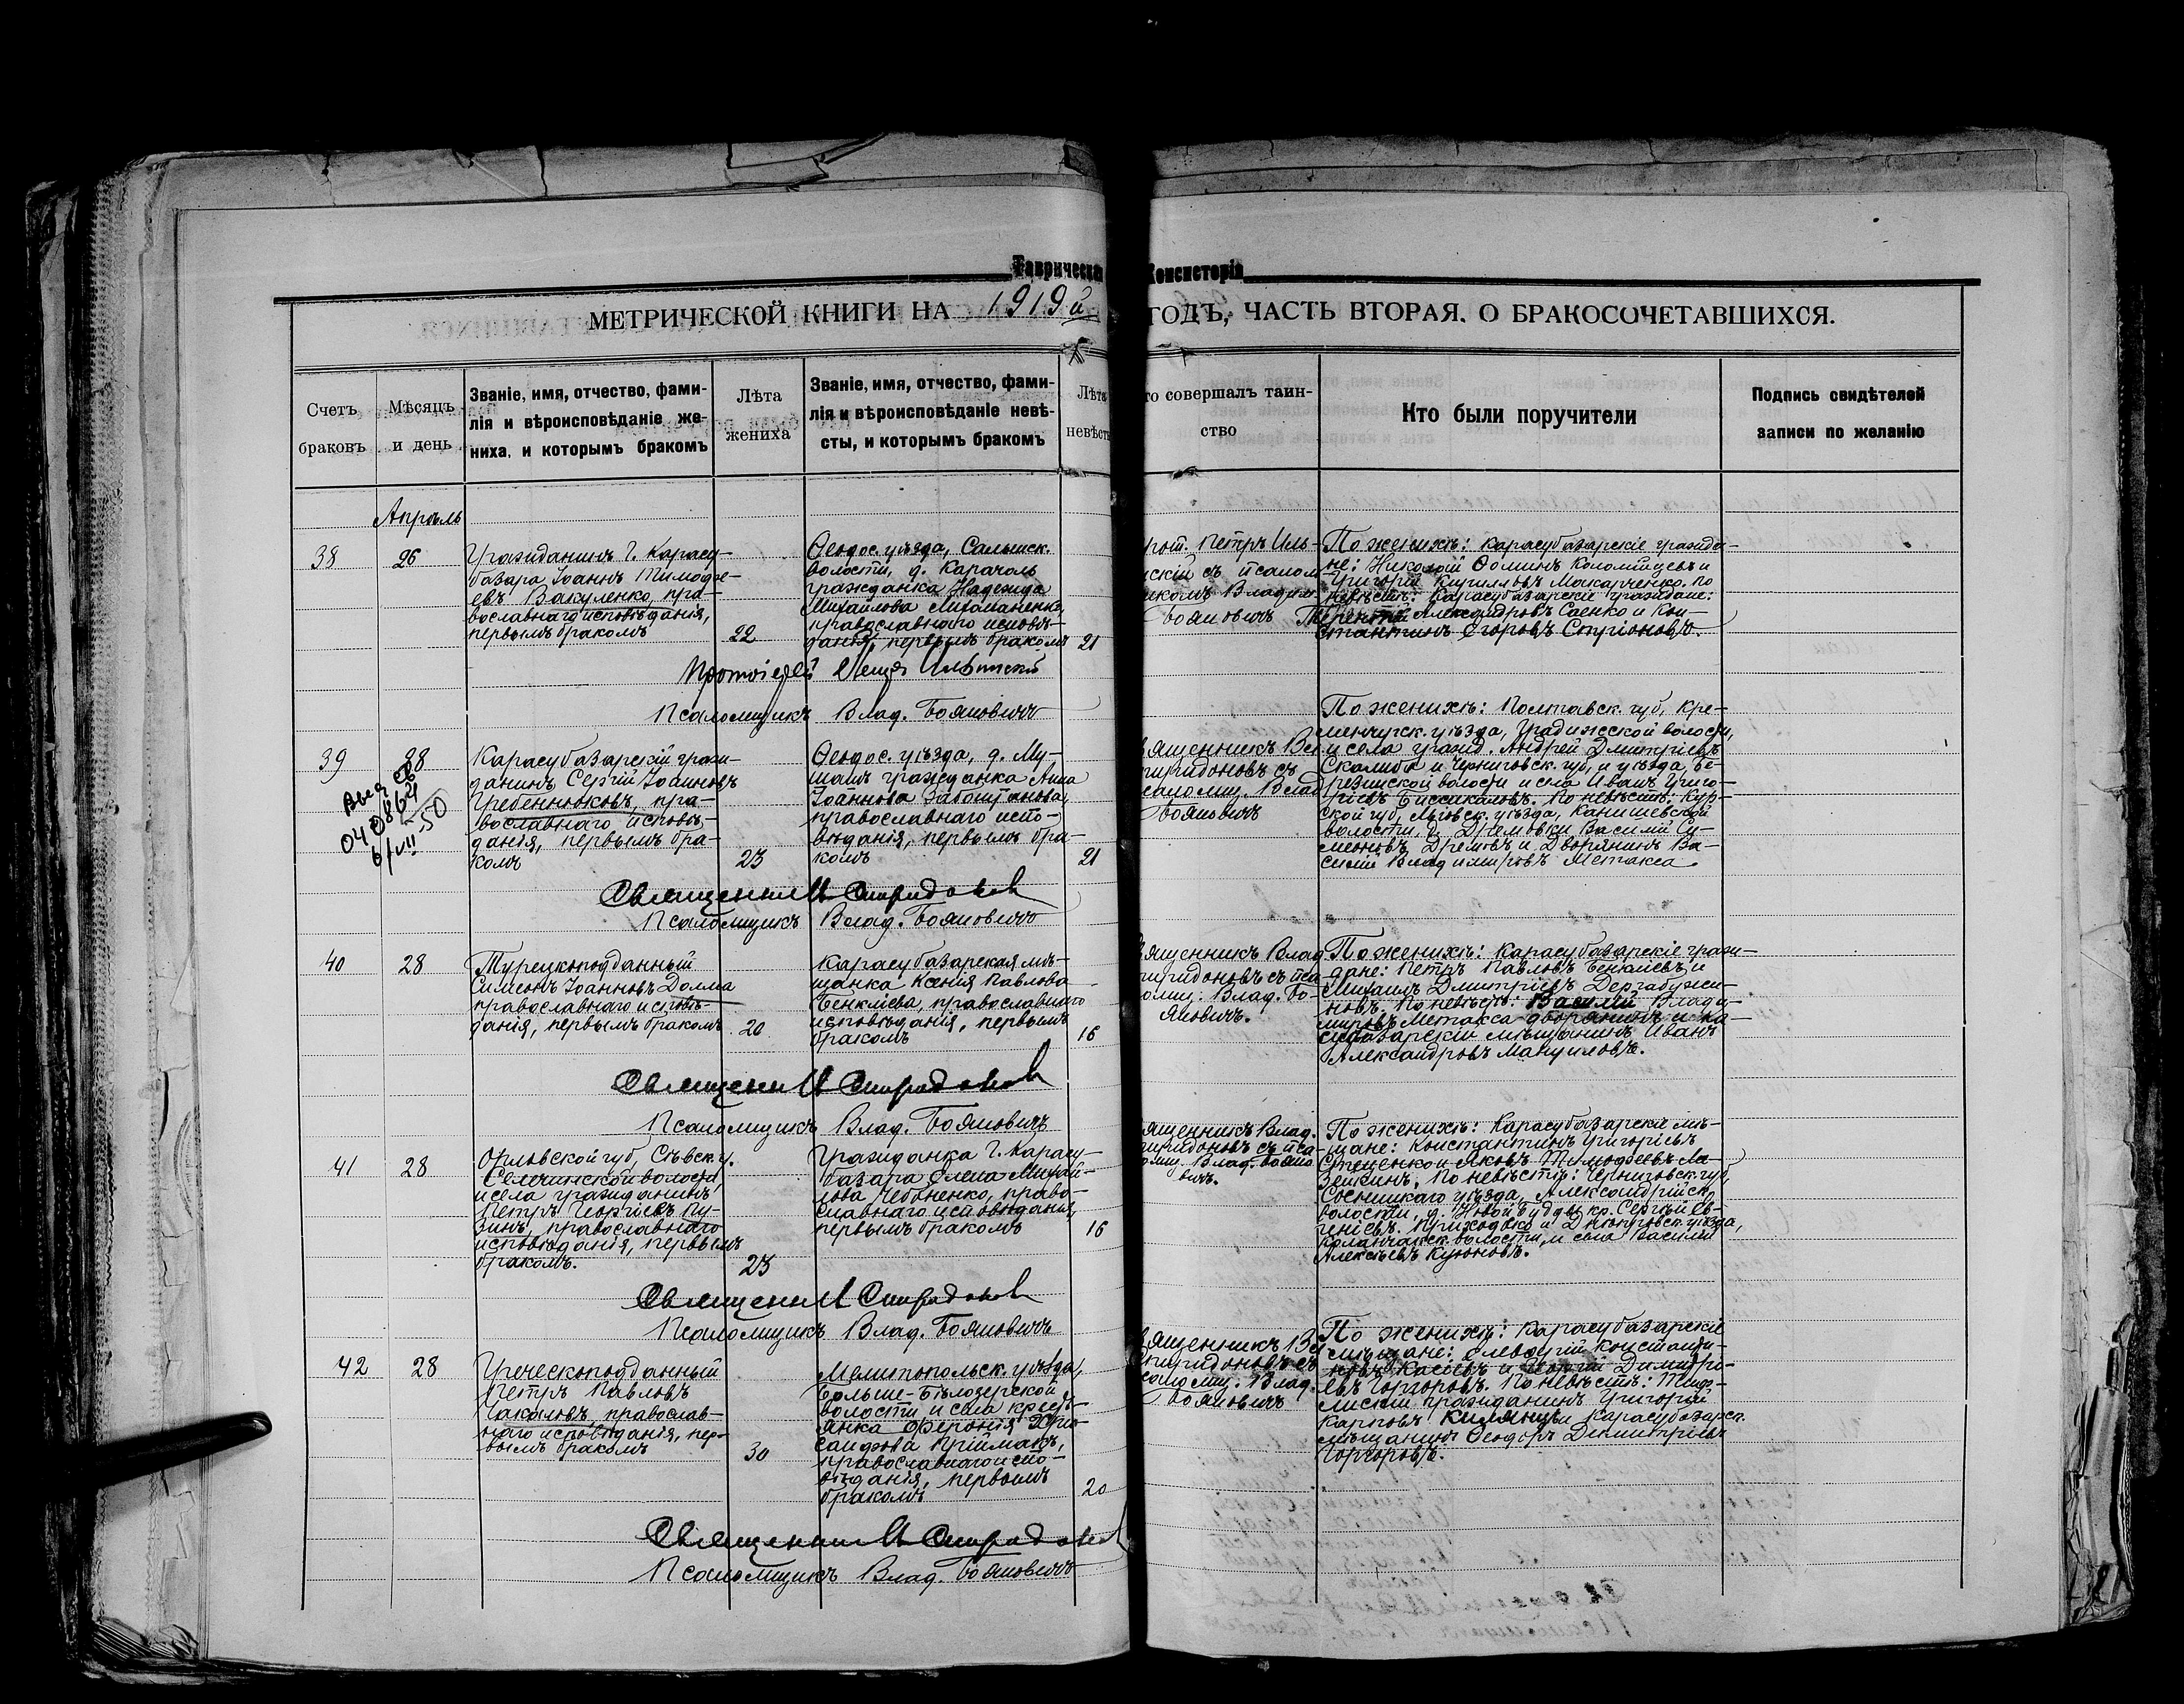 Таврическая Консисторія
МЕТРИЧЕСКОЙ КНИГИ НА 1919й ГОДЪ, ЧАСТЬ ВТОРАЯ. О БРАКОСОЧЕТАВШИХСЯ.
Счетъ
браковъ
Мѣсяцъ
и день
Званіе, имя, отчество, фами-
лія и вѣроисповѣданіе же-
ниха, и которымъ бракомъ
Лѣта
жениха
Званіе, имя, отчество, фами-
лія и вѣроисповѣданіе невѣ-
сты, и которымъ бракомъ
Лѣта
невѣсты
то совершалъ таин-
ство
Кто были поручители
Подпись свидѣтелей
записи по желанію
Апрѣль
38
26
Гражданинъ г. Карасу-
базара Іоаннъ Тимофе-
евъ Вакуленко, пра-
вославнаго исповѣданія,
первымъ бракомъ
22
Ѳеодос. уѣзда, Салынск.
волости, д. Карачоль
гражданка Надежда
Михайлова
православнаго исповѣ-
данія, первымъ бракомъ
21
рот. Петръ Иль-
нскій съ псалом
икомъ Владим.
Бояновичъ
По женихѣ: Карасубазарскіе гражда-
не: Николай Ѳоминъ Коломійцевъ и
Григорій Кирилловъ Макарченко. По
невѣстѣ: Карасубазарскіе граждане:
Терентій Александровъ Саенко и Кон-
стантинъ Егоровъ Стріоновъ.
Протоіерей Петръ Ильинскій
Псаломщикъ Влад. Бояновичъ
39
28
Карасубазарскій граж-
данинъ Сергій Іоанновъ
Гребенниковъ, пра-
вославнаго исповѣ-
данія, первымъ бра-
комъ
23
Ѳеодос. уѣзда, д. Му-
шашъ гражданка Анна
Іоаннова Забаштанова,
православнаго испо-
вѣданія, первымъ бра-
комъ
21
вященникъ Вл
пиридоновъ съ
саломщ. Влад
Бояновичъ
По женихѣ: Полтавск. губ, Кре-
менчугск. уѣзда, Градижской волости,
и села гражд. Андрей Дмитріевъ
Скалиба и Черниговск. губ, и уѣзда, Бе-
резинской волости и села Иванъ Григо-
ріевъ По невѣстѣ: Кур-
ской губ, Льговск. уѣзда, Канышевской
волости, д. Дремовки Василій Си-
меоновъ Дремовъ и Дворянинъ Ва-
силій Владимировъ Метакса.
Священник Спиридонов
Псаломщикъ Влад. Бояновичъ
40
28
Турецкоподданный
Симеонъ Іоанновъ Долма
православнаго исповѣ-
данія, первымъ бракомъ
20
Карасубазарская мѣ-
щанка Ксенія Павлова
Бенклiева, православнаго
исповѣданія, первымъ
бракомъ
16
вященникъ Влад.
пиридоновъ съ пса-
ломщ. Влад. Бо-
яновичъ.
По женихѣ: Карасубазарскіе граж-
дане: Петръ Павловъ Бенклiевъ и
Михаилъ Дмитріевъ
новъ. По невѣстѣ: Василій Влади-
мировъ Метакса дворянинъ и Ка-
мѣщанинъ Иванъ
Александровъ Мануиловъ.
Священник Спиридонов
Псаломщикъ Влад. Бояновичъ
41
28
Орловской губ, Сѣвск. у.
Селечинской волости
и села гражданинъ
Петръ Георгіевъ Пу-
зинъ, православнаго
исповѣданія, первымъ
бракомъ.
23
Гражданка г. Карасу-
базара Елена Михай-
лова Чебаненко, право-
славнаго исповѣданія,
первымъ бракомъ
16
ященникъ Влад.
пиридоновъ съ пса-
ломщ. Влад. Бояно-
вичъ.
По женихѣ: Карасубазарскіе мѣ-
щане: Константинъ Григоріевъ
Стеценко и Яковъ Тимофеевъ Ла-
зейкинъ. По невѣстѣ: Черниговск. губ,
Сосницкаго уѣзда, Александрійск.
волости, д. Новой Будды кр. Сергѣй Ев-
геніевъ. Приходько и Днѣпровск. уѣзда,
Каланчакск. волости, и села Василій
Алексѣевъ
Священник Спиридонов
Псаломщикъ Влад. Бояновичъ
42
28
Греческоподданный
Петръ Павловъ
Чакаловъ, православ-
наго исповѣданія, пер-
вымъ бракомъ
30
Мелитопольск. уѣзда,
Больше-Бѣлозерской
волости и села кресть-
янка Февронія Хри-
санфова Прійманъ,
православнаго испо-
вѣданія, первымъ
бракомъ
20
вященникъ Вл
пиридоновъ съ
саломщ. Влад.
Бояновичъ
По женихѣ: Карасубазарскіе
мѣщане: Елевферій Константи-
новъ Касіевъ и Георгій Димитрі-
евъ Горгоровъ. По невѣстѣ: Тиф-
лискій гражданинъ Григорій
Карповъ и Карасубазарск.
мѣщанинъ Ѳеодоръ Димитріевъ
Горгоровъ.
Священник Спиридонов
Псаломщикъ Влад. Бояновичъ